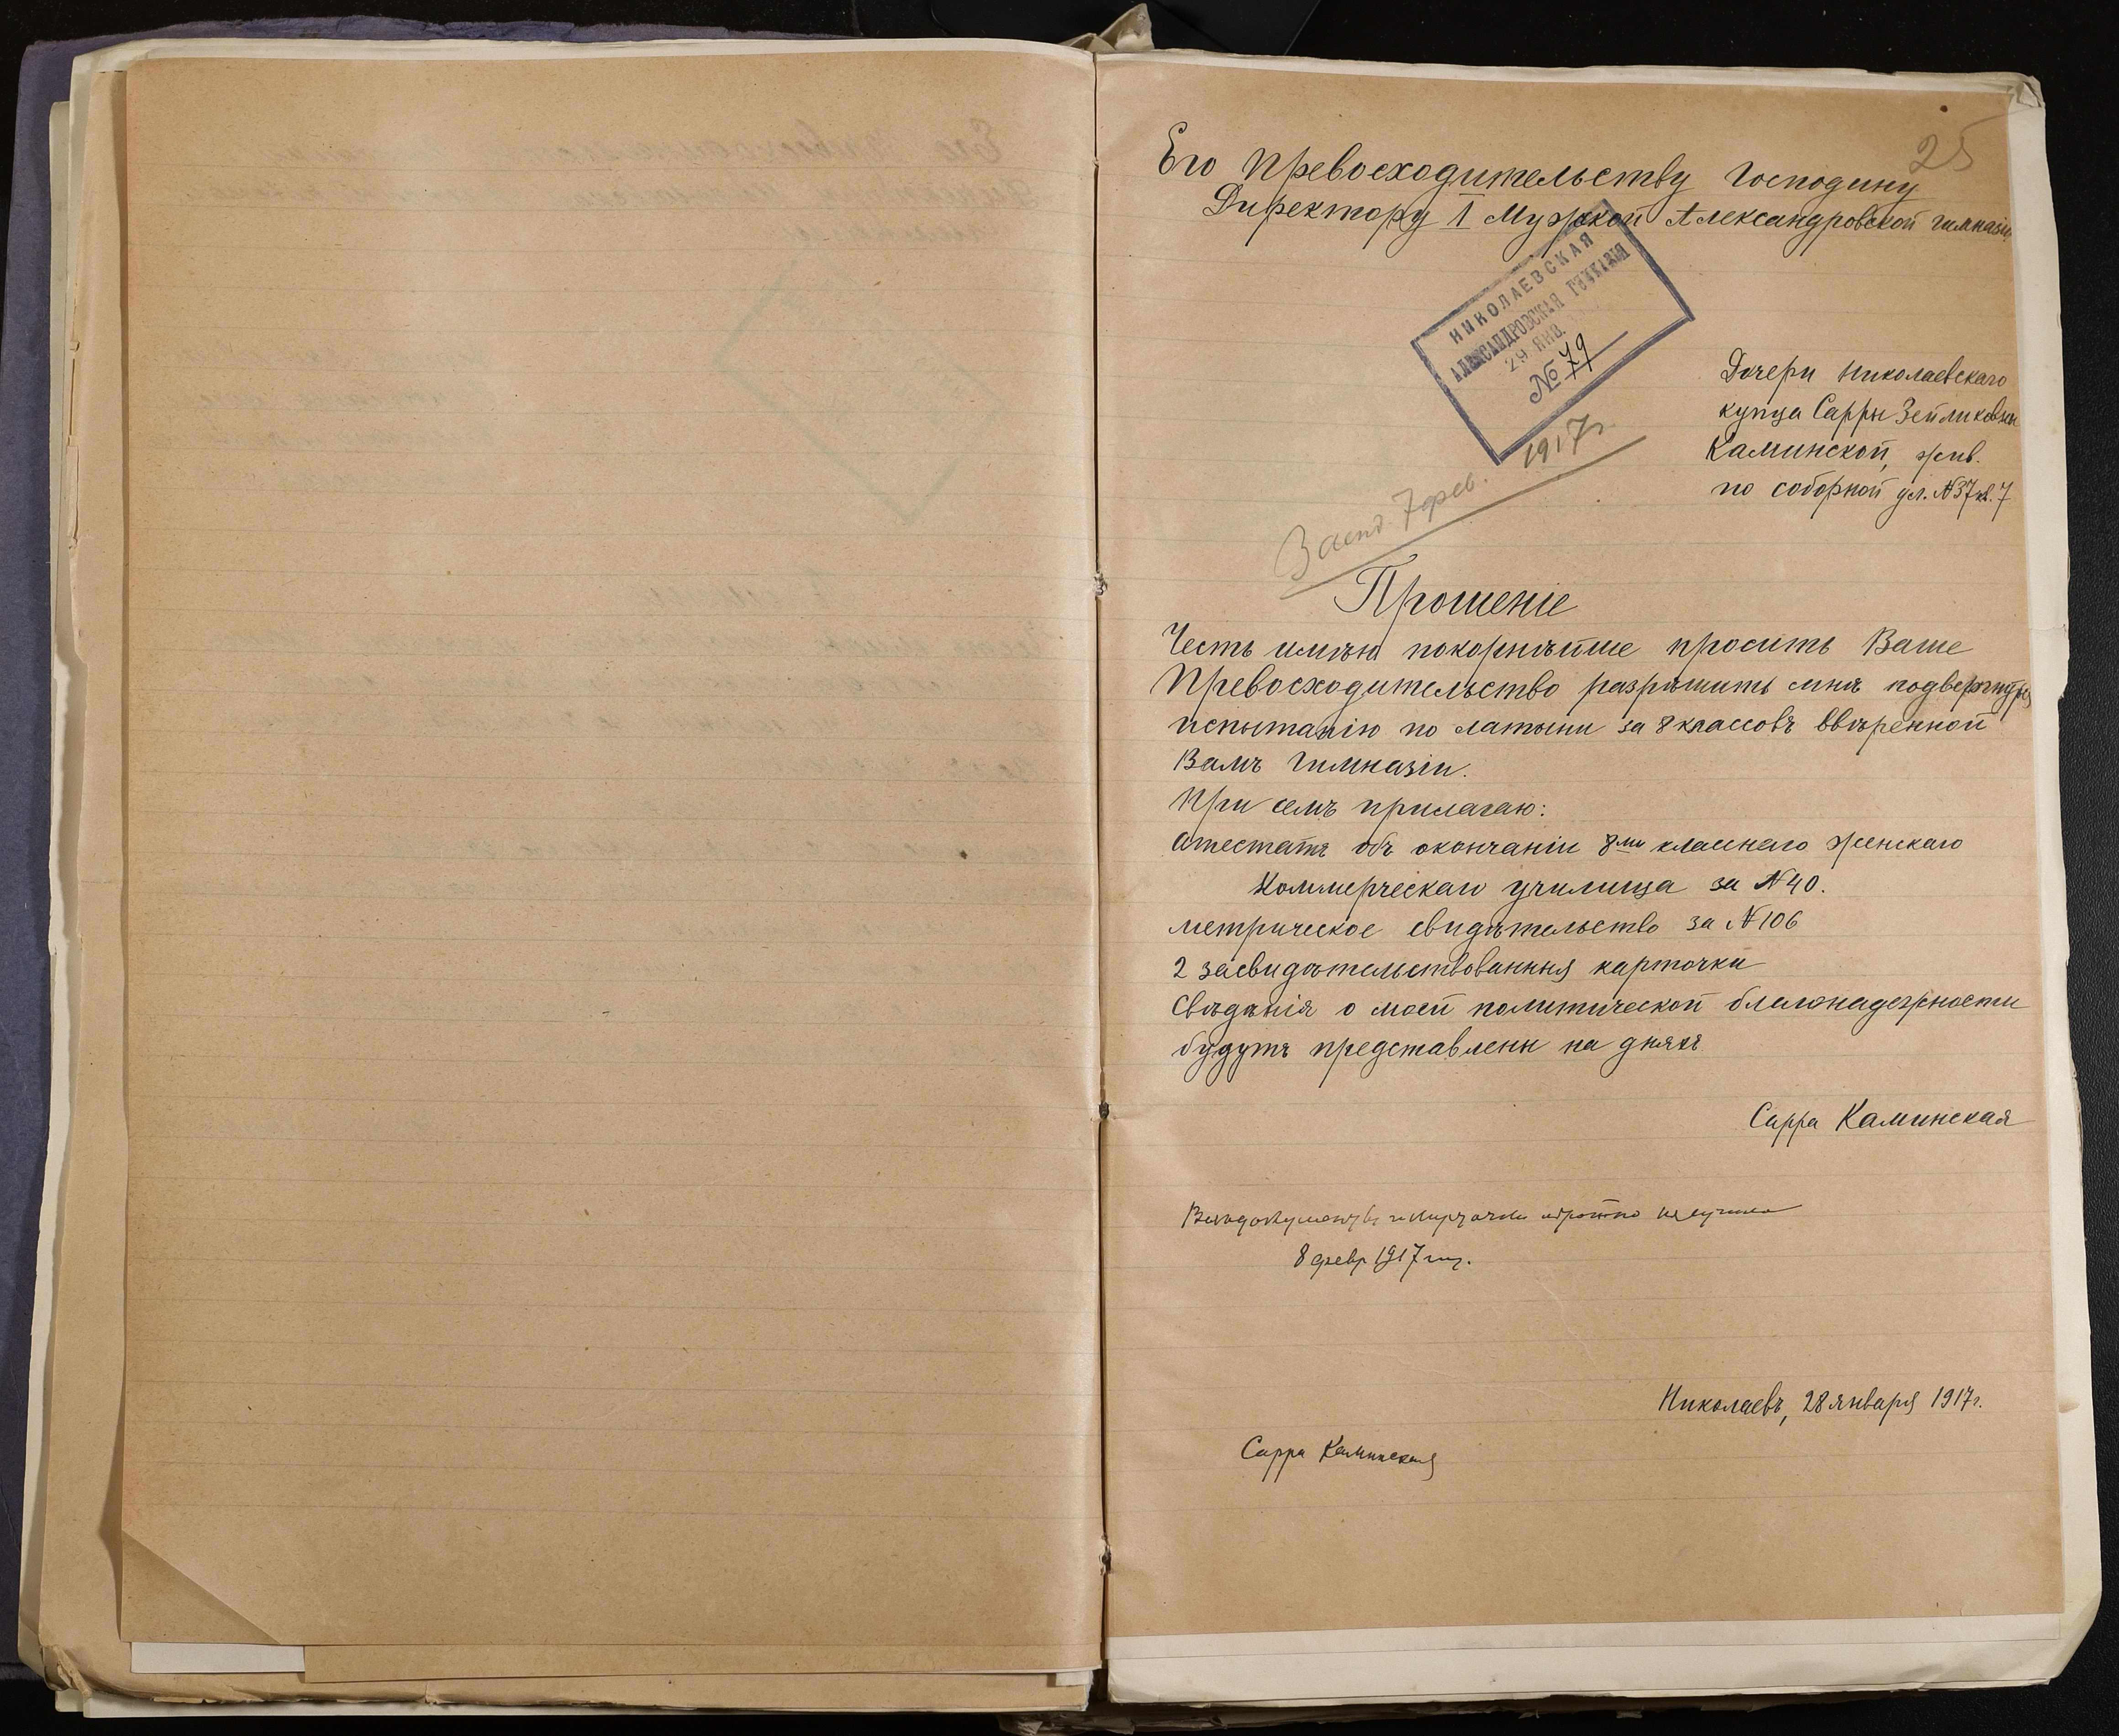 25
Его Превосходительству Господину
Директору 1 Мужской Александровской гимназіи
НИКОЛАЕВСКАЯ
АЛЕКСАНДРОВСКАЯ ГИМНАЗІЯ
29 ЯНВ.
№ 79
Дочери Николаевскаго
купца Сарры Зейликовны
Каминской, жив.
по соборной ул. №37 кв. 7
7 фев. 1917 г.
Прошеніе
Честь имѣю покорнѣйше просить Ваше
Превосходительство разрѣшить мнѣ подвергнуться
испытанію по латыни за 8 классовъ ввѣренной
Вамъ Гимназіи.
При семъ прилагаю:
Аттестатъ объ окончаніи 8ми класснаго женскаго
Коммерческаго училища за №40.
метрическое свидѣтельство за №106
2 засвидѣтельствованныя карточки
Свѣдѣнія о моей политической благонадежности
будутъ представлены на дняхъ
Сарра Каминская
документы и карточки обратно получила
8 февр 1917 г.
Николаевъ, 28 января 1917г.
Сарра Каминская